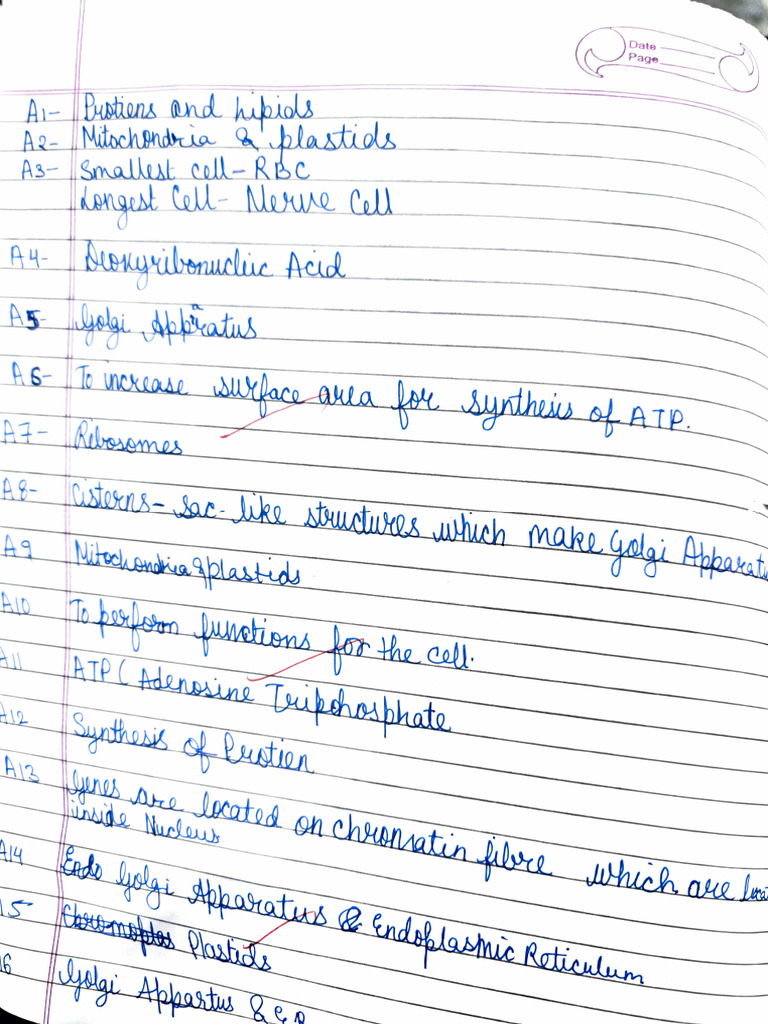 Date
Page
A1- Protiens and Lipids
A2- Mitochondria & plastids
A3- Smallest cell - RBC
Longest Cell - Nerve Cell
A4- Deoxyribonucleic Acid
A5- Golgi Apparatus
A6- To increase surface area for synthesis of ATP.
A7- Ribosomes
A8- Cisterns - sac-like structures which make Golgi Apparatu
A9 Mitochondria & plastids
A10 To perform functions for the cell.
A11 ATP (Adenosine Tripohosphate
A12 Synthesis of Protien
A13 Genes are located on chromatin fibre which are locat
inside Nucleus
A14 Endo Golgi Apparatus & Endoplasmic Reticulum
15 Plastids
16 Golgi Appartus & E.R